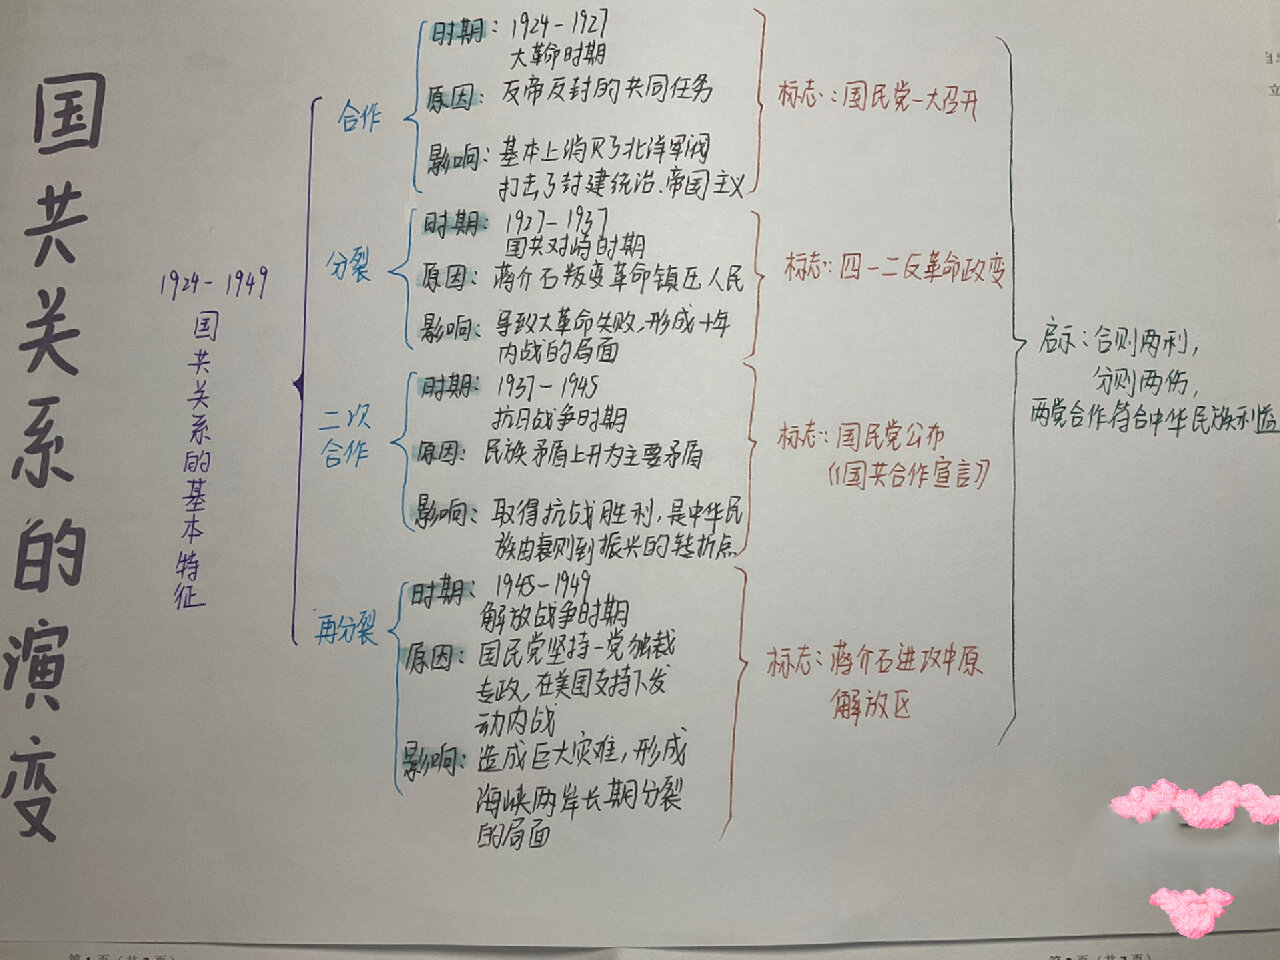 国共关系的演变
1924-1949
国共关系的基本特征
合作
时期：1924-1927
大革命时期
原因：反帝反封的共同任务
影响：基本上消灭了北洋军阀
打击了封建统治、帝国主义
标志：国民党一大召开
分裂
时期：1927-1937
国共对峙时期
原因：蒋介石叛变革命镇压人民
影响：导致大革命失败，形成十年
内战的局面
标志：四一二反革命政变
二次
合作
时期：1937-1945
抗日战争时期
原因：民族矛盾上升为主要矛盾
影响：取得抗战胜利，是中华民
族由衰则到振兴的转折点
标志：国民党公布
《国共合作宣言》
再分裂
时期：1945-1949
解放战争时期
原因：国民党坚持一党独裁
专政，在美国支持下发
动内战
影响：造成巨大灾难，形成
海峡两岸长期分裂
的局面
标志：蒋介石进攻中原
解放区
启示：合则两利，
分则两伤，
两党合作符合中华民族利益